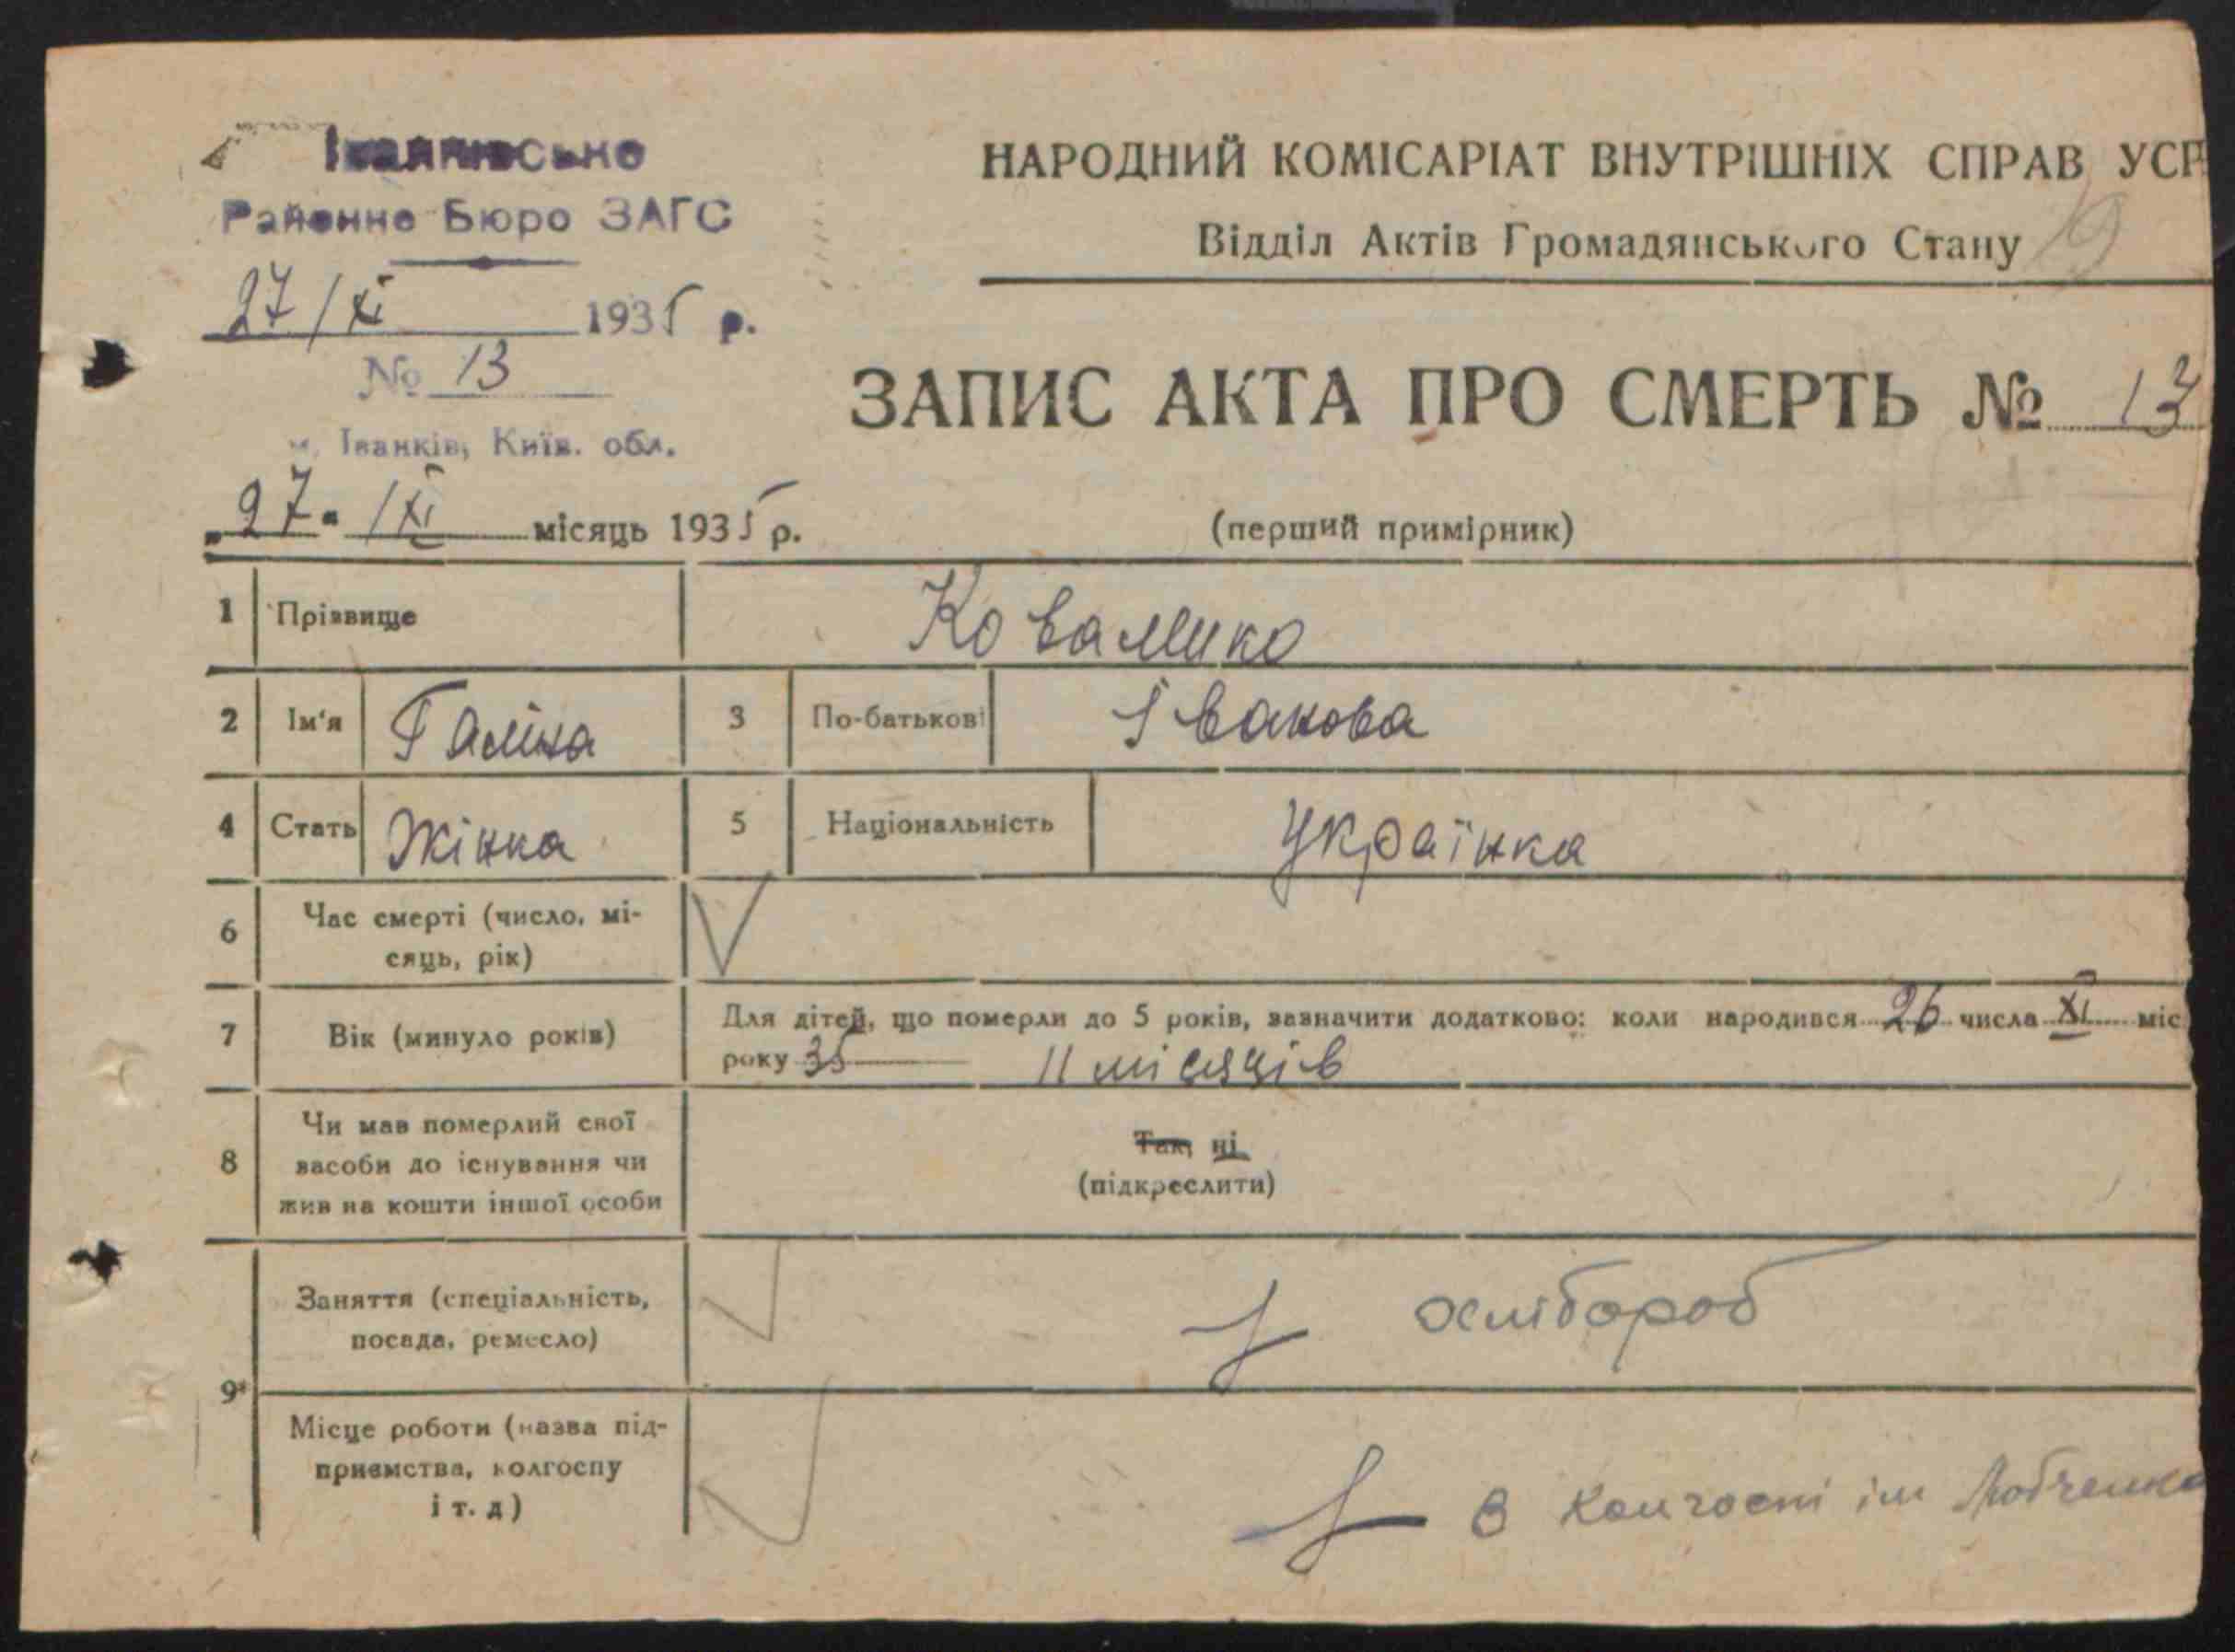 Районне Бюро ЗАГС
27/XI 1935 р.
№ 13
м. Іванків, Київ. обл.
НАРОДНИЙ КОМІСАРІАТ ВНУТРІШНІХ СПРАВ УСР
Відділ Актів Громадянського Стану
19
ЗАПИС АКТА ПРО СМЕРТЬ № 13
„27" /XI місяць 1935 р.
(перший примірник)
1 Прізвище
2 Ім'я Галіна 3 По-батькові Іванова
4 Стать Жінка 5 Національність Українка
6 Час смерті (число, мі-
сяць, рік)
7 Вік (минуло років) Для дітей, що померли до 5 років, зазначити додатково: коли народився 26 числа XI міс
року 35 11 місяців
8 Чи мав померлий свої
засоби до існування чи
жив на кошти іншої особи
Так, ні
(підкреслити)
9* Заняття (спеціальність,
посада, ремесло)
хлібороб
Місце роботи (назва під-
приємства, колгоспу
і т. д)
В колгоспі ім Любченка